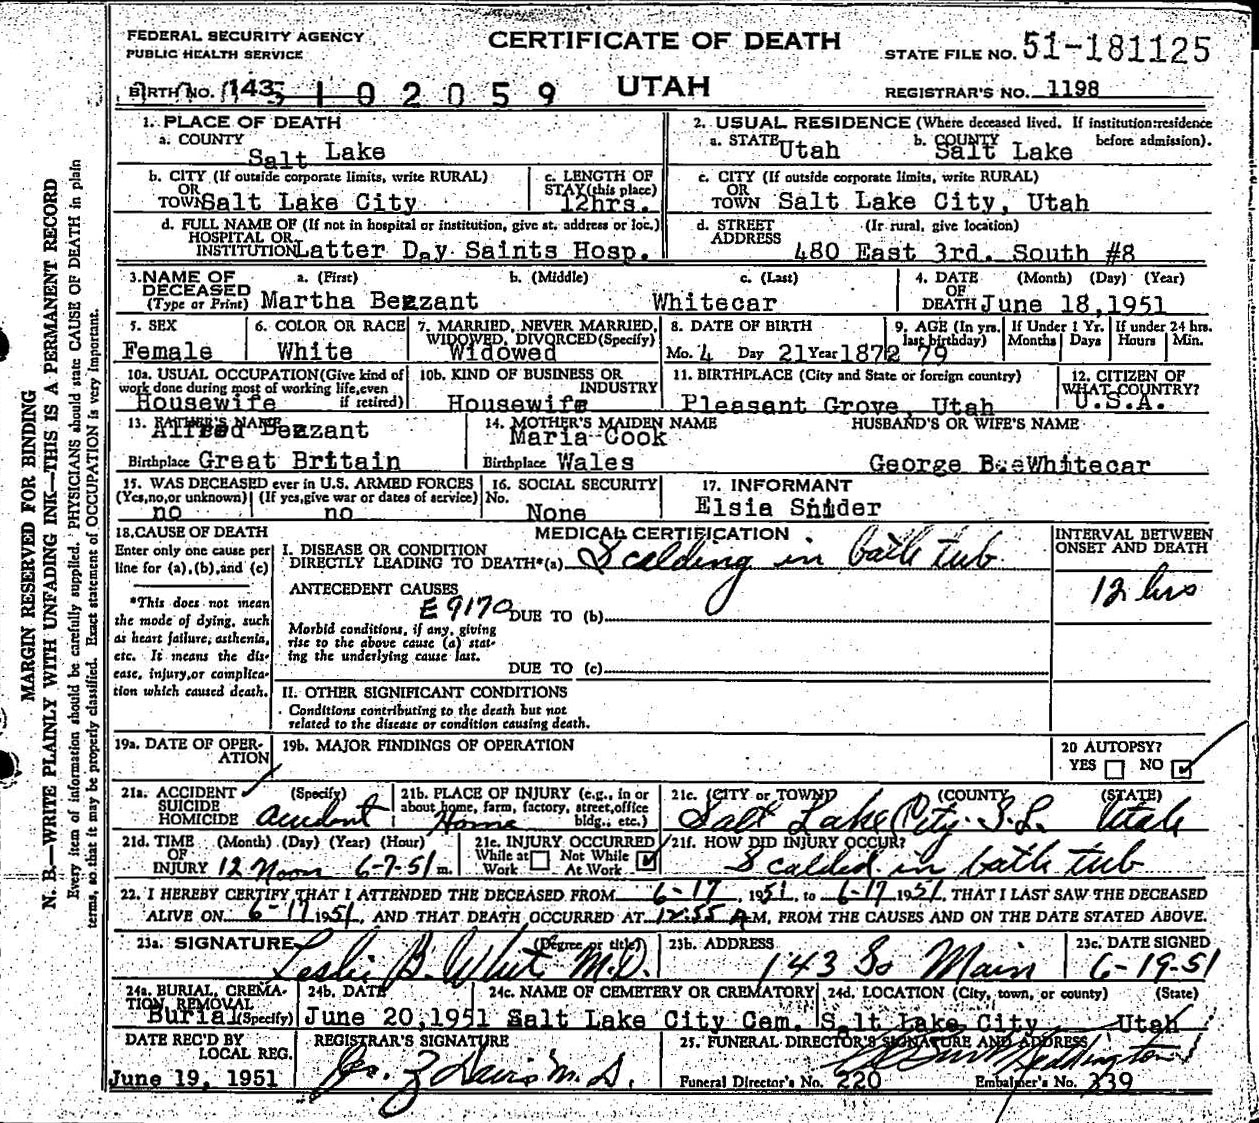 FEDERAL SECURITY AGENCY
PUBLIC HEALTH SERVICE
CERTIFICATE OF DEATH
UTAH
STATE FILE NO. 51-181125
BIRTH NO. 143 102059
REGISTRAR'S NO. 1198
MARGIN RESERVED FOR BINDING
N. B.—WRITE PLAINLY WITH UNFADING INK—THIS IS A PERMANENT RECORD
Every item of information should be carefully supplied. PHYSICIANS should state CAUSE OF DEATH in plain
terms, so that it may be properly classified. Exact statement of OCCUPATION is very important.
1. PLACE OF DEATH
a. COUNTY
Salt Lake
2. USUAL RESIDENCE (Where deceased lived. If institution: residence
before admission).
a. STATE Utah b. COUNTY Salt Lake
b. CITY (If outside corporate limits, write RURAL)
OR
TOWN Salt Lake City
c. LENGTH OF
STAY (this place)
12hrs.
c. CITY (If outside corporate limits, write RURAL)
OR
TOWN Salt Lake City, Utah
d. FULL NAME OF (If not in hospital or institution, give st. address or loc.)
HOSPITAL OR
INSTITUTION Latter Day Saints Hosp.
d. STREET (If rural, give location)
ADDRESS 480 East 3rd. South #8
3. NAME OF DECEASED a. (First) b. (Middle) c. (Last)
(Type or Print) Martha Bezzant Whitecar
4. DATE (Month) (Day) (Year)
OF
DEATH June 18, 1951
5. SEX
Female
6. COLOR OR RACE
White
7. MARRIED, NEVER MARRIED,
WIDOWED, DIVORCED (Specify)
Widowed
8. DATE OF BIRTH
Mo. 4 Day 21 Year 1872
9. AGE (In yrs. last birthday)
79
If Under 1 Yr.
Months Days
If under 24 hrs.
Hours Min.
10a. USUAL OCCUPATION (Give kind of
work done during most of working life, even
if retired)
Housewife
10b. KIND OF BUSINESS OR
INDUSTRY
Housewife
11. BIRTHPLACE (City and State or foreign country)
Pleasant Grove, Utah
12. CITIZEN OF
WHAT COUNTRY?
U.S.A.
13. FATHER'S NAME
Alfred Bezzant
Birthplace Great Britain
14. MOTHER'S MAIDEN NAME
Maria Cook
Birthplace Wales
HUSBAND'S OR WIFE'S NAME
George Whitecar
15. WAS DECEASED ever in U.S. ARMED FORCES
(Yes, no, or unknown) (If yes, give war or dates of service)
no no
16. SOCIAL SECURITY
No.
None
17. INFORMANT
Elsia Snider
18. CAUSE OF DEATH
Enter only one cause per
line for (a), (b), and (c)
*This does not mean
the mode of dying, such
as heart failure, asthenia,
etc. It means the dis-
ease, injury, or complica-
tion which caused death.
MEDICAL CERTIFICATION
I. DISEASE OR CONDITION
DIRECTLY LEADING TO DEATH*(a) Scalding in bath tub
INTERVAL BETWEEN
ONSET AND DEATH
12 hrs
ANTECEDENT CAUSES
E 9170 DUE TO (b)
Morbid conditions, if any, giving
rise to the above cause (a) stat-
ing the underlying cause last.
DUE TO (c)
II. OTHER SIGNIFICANT CONDITIONS
Conditions contributing to the death but not
related to the disease or condition causing death.
19a. DATE OF OPER-
ATION
19b. MAJOR FINDINGS OF OPERATION
20 AUTOPSY?
YES NO
21a. ACCIDENT (Specify)
SUICIDE
HOMICIDE accident
21b. PLACE OF INJURY (e.g., in or
about home, farm, factory, street, office
bldg., etc.)
Home
21c. (CITY or TOWN) (COUNTY) (STATE)
Salt Lake City S.L. Utah
21d. TIME (Month) (Day) (Year) (Hour)
OF
INJURY 12 Noon 6-7-51 m.
21e. INJURY OCCURRED
While at Work Not While At Work
21f. HOW DID INJURY OCCUR?
Scalded in bath tub
22. I HEREBY CERTIFY THAT I ATTENDED THE DECEASED FROM 6-17, 1951, to 6-17, 1951, THAT I LAST SAW THE DECEASED
ALIVE ON 6-17 1951, AND THAT DEATH OCCURRED AT 12:55 A M, FROM THE CAUSES AND ON THE DATE STATED ABOVE.
23a. SIGNATURE (Degree or title)
Leslie B. White M.D.
23b. ADDRESS
143 So Main
23c. DATE SIGNED
6-19-51
24a. BURIAL, CREMA-
TION, REMOVAL
(Specify)
Burial
24b. DATE
June 20, 1951
24c. NAME OF CEMETERY OR CREMATORY
Salt Lake City Cem.
24d. LOCATION (City, town, or county) (State)
Salt Lake City Utah
DATE REC'D BY
LOCAL REG.
June 19, 1951
REGISTRAR'S SIGNATURE
Davis M.D.
25. FUNERAL DIRECTOR'S SIGNATURE AND ADDRESS
Funeral Director's No. 220 Embalmer's No. 339